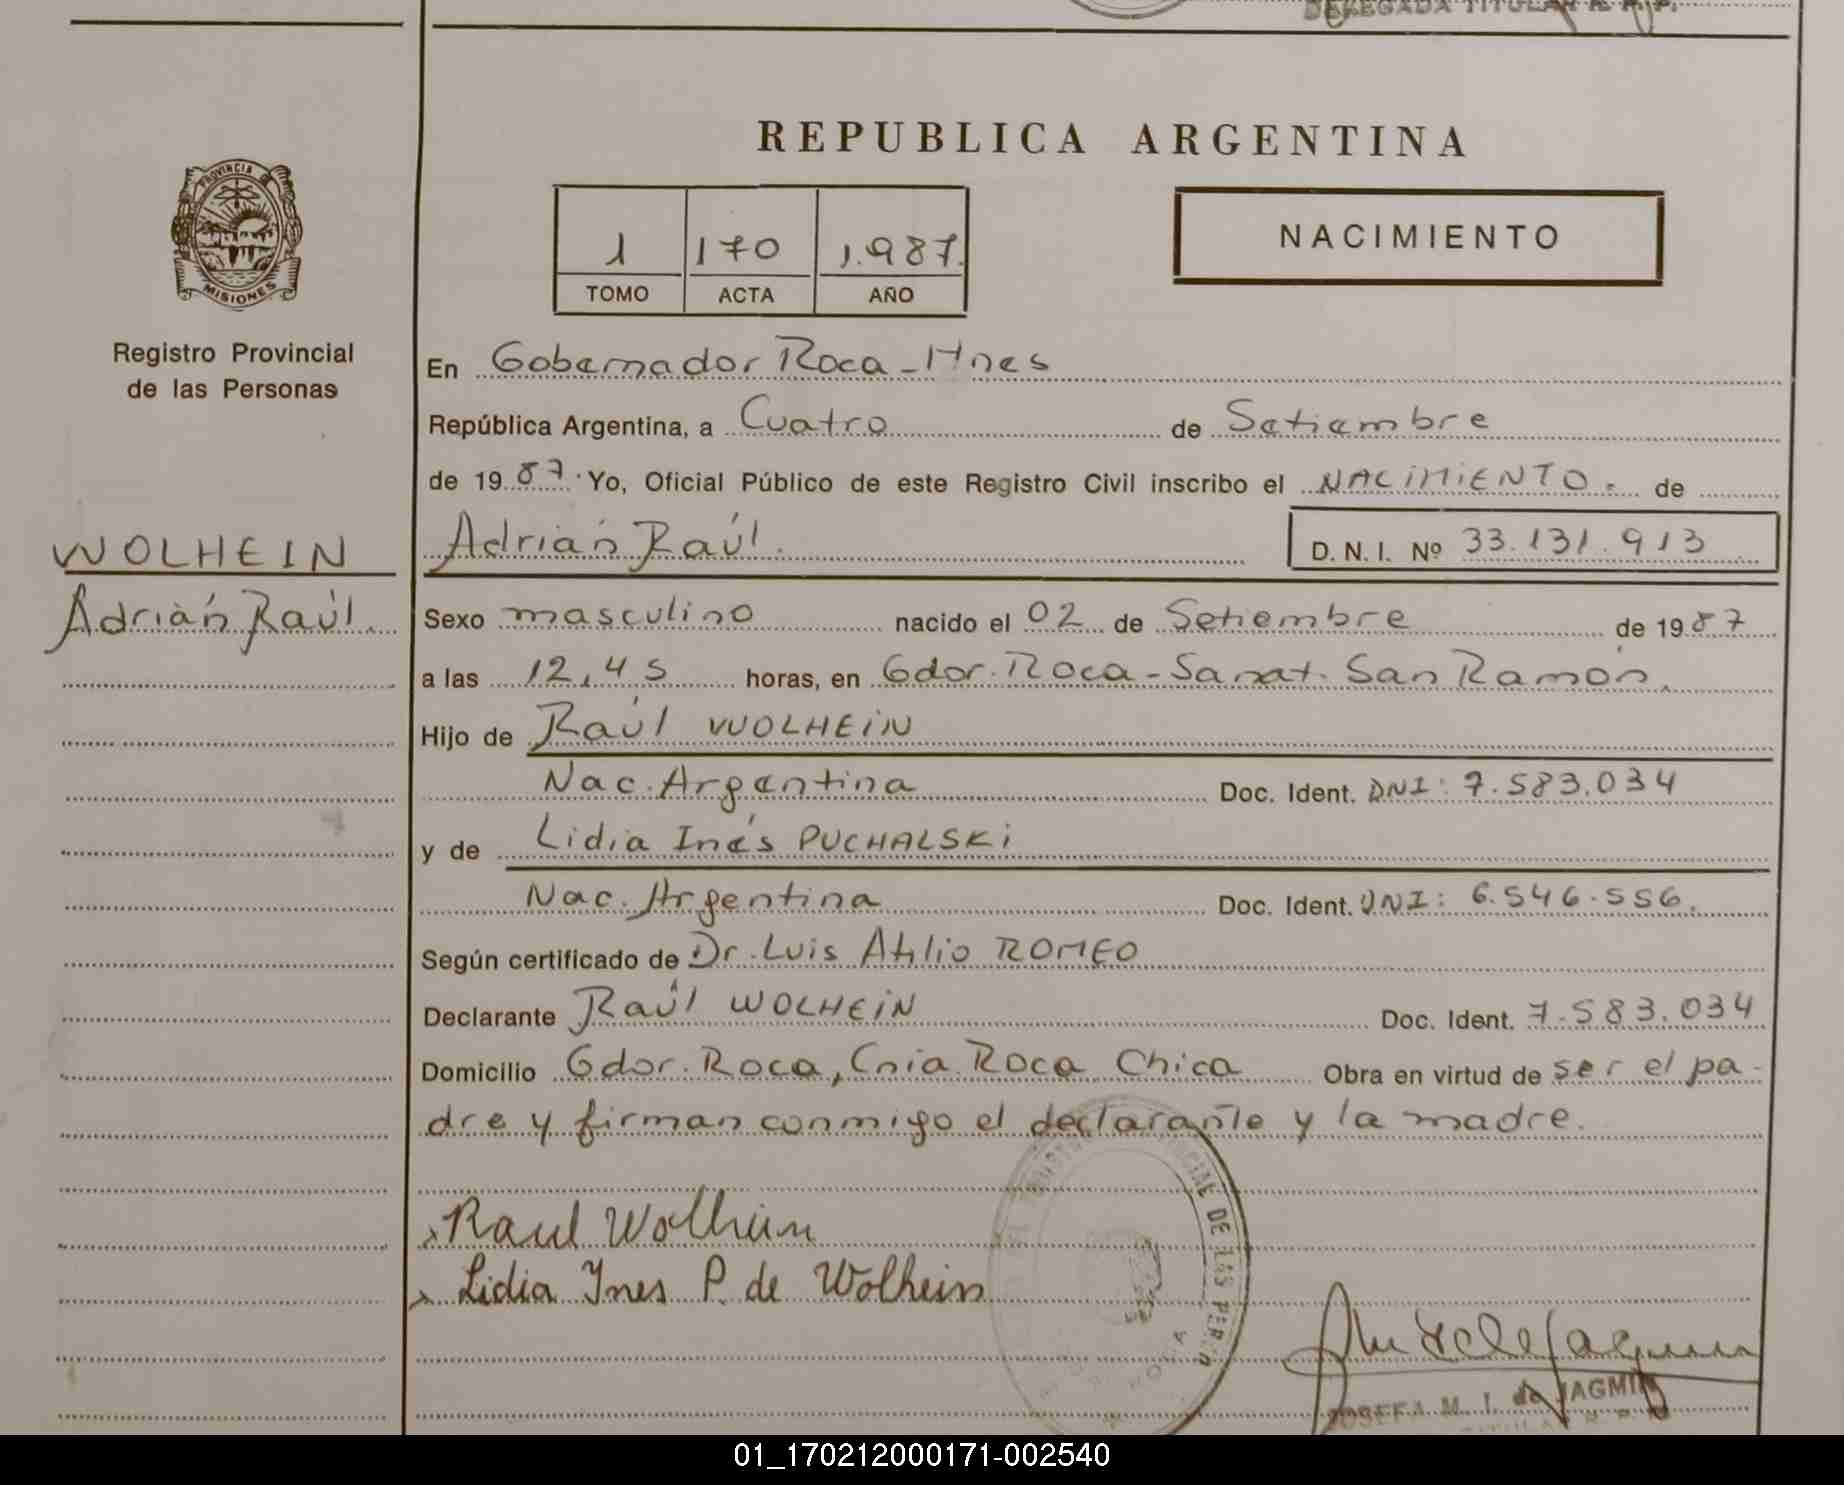 DELEGADA TITULAR R. P. P.
REPUBLICA ARGENTINA
PROVINCIA D
MISIONES
1 170 1.987.
TOMO ACTA AÑO
NACIMIENTO
Registro Provincial
de las Personas
En Gobernador Roca - Mnes
República Argentina, a Cuatro de Setiembre
de 19 87. Yo, Oficial Público de este Registro Civil inscribo el NACIMIENTO. de
WOLHEIN
Adrián Raúl. D. N. I. Nº 33.131.913
Adrián Raúl.
Sexo masculino nacido el 02 de Setiembre de 19 87
a las 12,45 horas, en Gdor. Roca - Sanat. San Ramón.
Hijo de Raúl WOLHEIN
Nac. Argentina Doc. Ident. DNI: 7.583.034
y de Lidia Inés PUCHALSKI
Nac. Argentina Doc. Ident. DNI: 6.546.556.
Según certificado de Dr. Luis Atilio ROMEO
Declarante Raúl WOLHEIN Doc. Ident. 7.583.034
Domicilio Gdor. Roca, Cnia. Roca Chica Obra en virtud de ser el pa-
dre y firman conmigo el declarante y la madre.
Raul Wolhein
Lidia Ines P. de Wolhein
DE LAS PERSO
ROCA
JOSEFA M. I. de JAGMIN
01_170212000171-002540